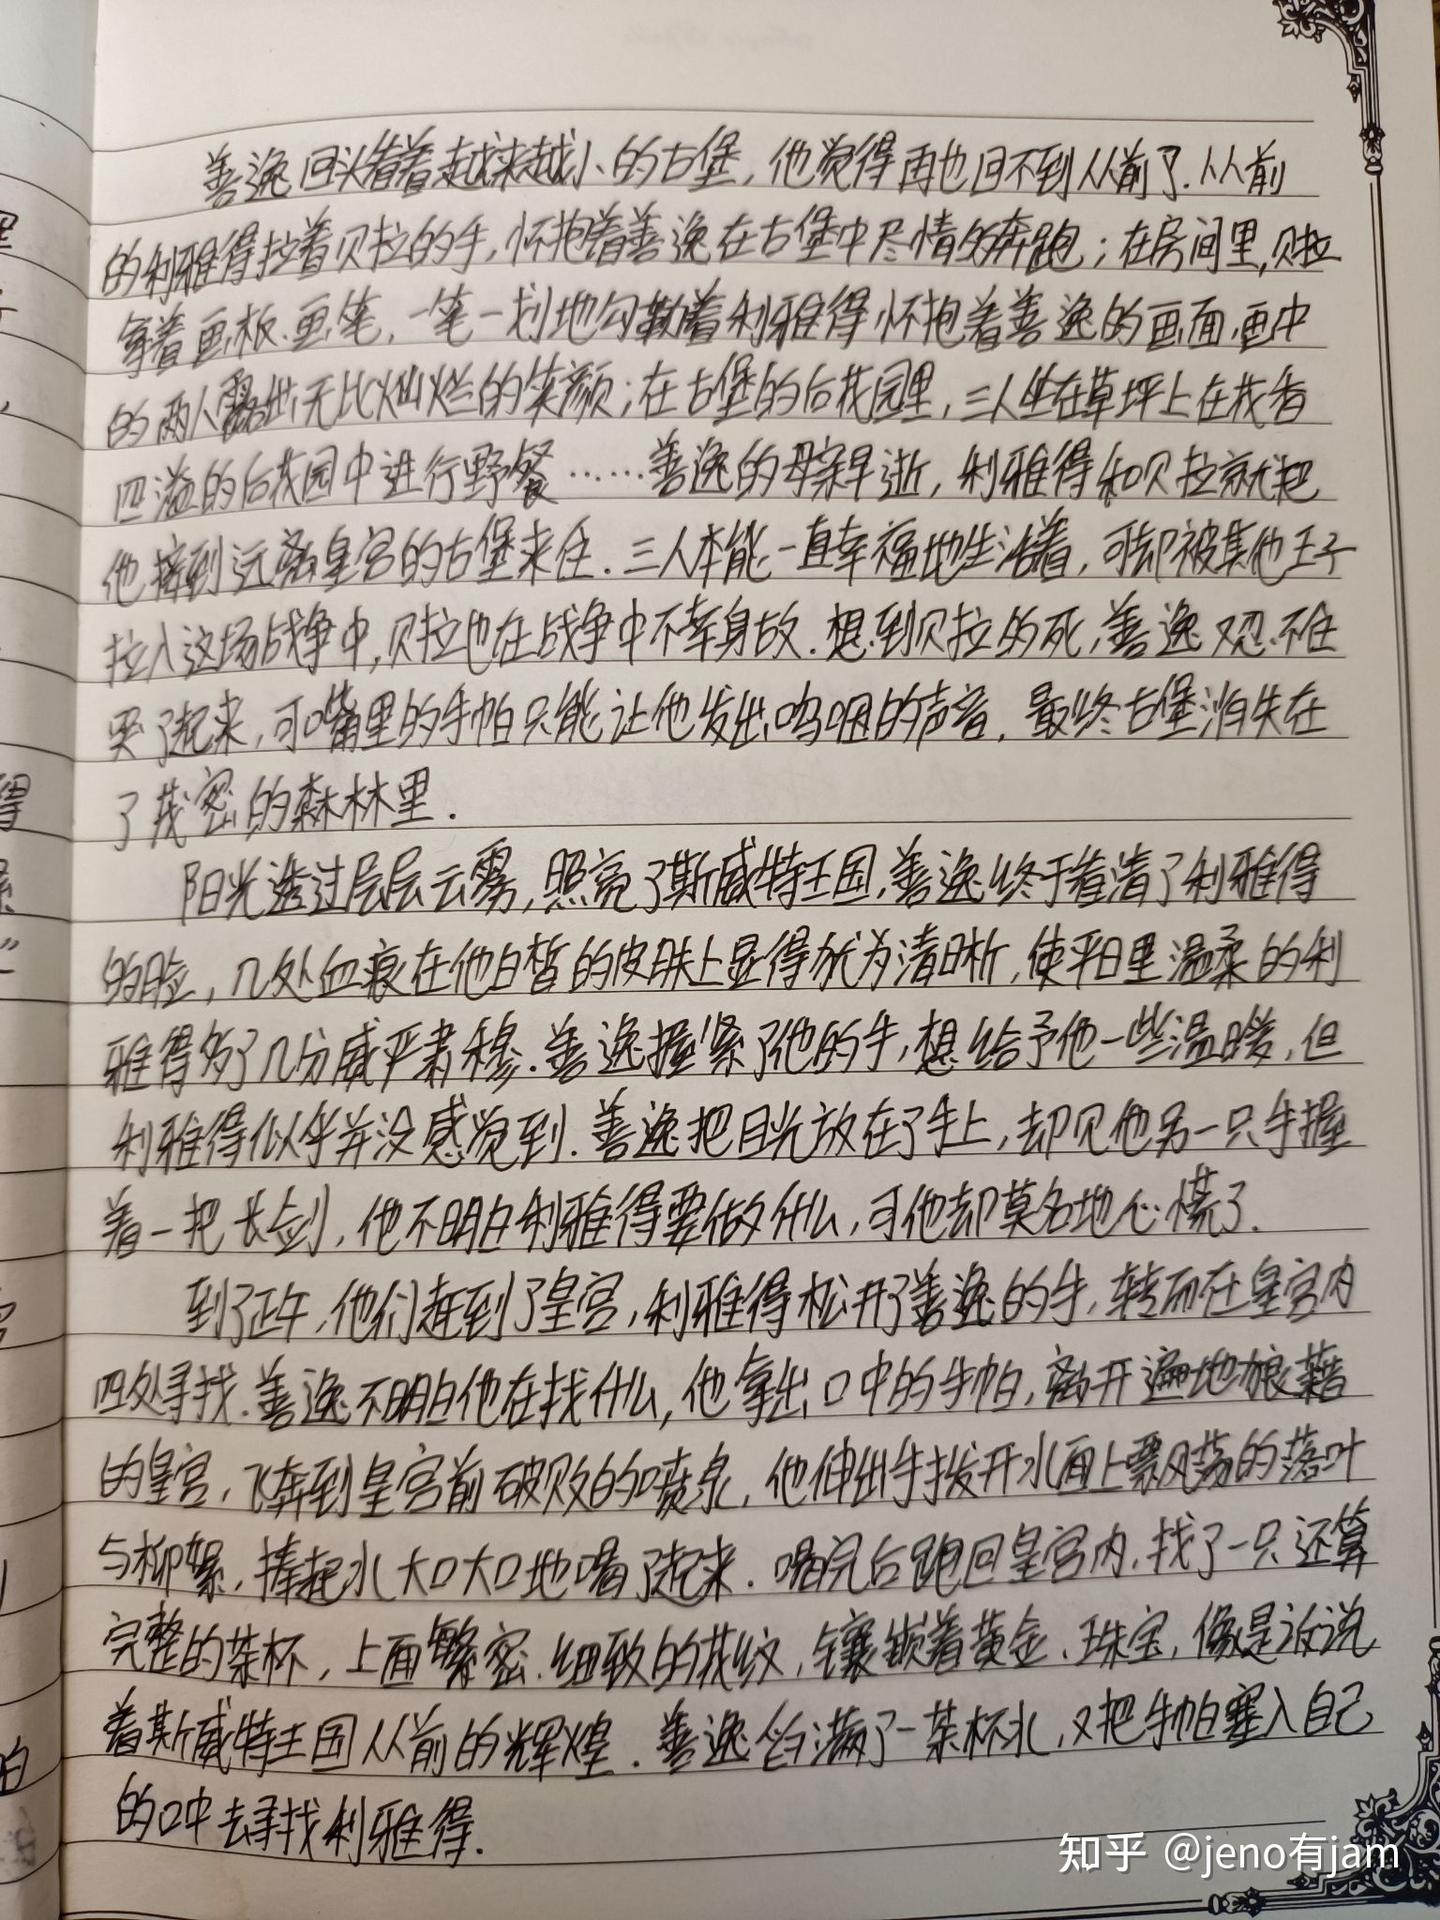 善逸回头看着越来越小的古堡，他觉得再也回不到从前了.从前
的利雅得拉着贝拉的手，怀抱着善逸在古堡中尽情的奔跑；在房间里，贝拉
拿着画板.画笔，一笔一划地勾勒着利雅得怀抱着善逸的画面，画中
的两人露出无比灿烂的笑颜；在古堡的后花园里，三人坐在草坪上在花香
四溢的后花园中进行野餐……善逸的母亲早逝，利雅得和贝拉就把
他接到远离皇宫的古堡来住.三人本能一直幸福地生活着，可却被其他王子
拉入这场战争中，贝拉也在战争中不幸身故.想到贝拉的死，善逸又忍不住
哭了起来，可嘴里的手帕只能让他发出呜咽的声音.最终古堡消失在
了茂密的森林里.
阳光透过层层云雾，照亮了斯威特王国，善逸终于看清了利雅得
的脸，几处血痕在他白皙的皮肤上显得尤为清晰，使平日里温柔的利
雅得多了几分威严肃穆.善逸握紧了他的手，想给予他一些温暖，但
利雅得似乎并没感觉到.善逸把目光放在了手上，却见他另一只手握
着一把长剑，他不明白利雅得要做什么，可他却莫名地心慌了.
到了正午，他们赶到了皇宫，利雅得松开了善逸的手，转而在皇宫内
四处寻找.善逸不明白他在找什么，他拿出口中的手帕，离开遍地狼藉
的皇宫，飞奔到皇宫前破败的喷泉，他伸出手拨开水面上飘荡的落叶
与柳絮，捧起水大口大口地喝了起来.喝完后跑回皇宫内，找了一只还算
完整的茶杯，上面繁密.细致的花纹，镶嵌着黄金.珠宝，像是诉说
着斯威特王国从前的辉煌.善逸舀满了一茶杯水，又把手帕塞入自己
的口中去寻找利雅得.
知乎 @jeno有jam